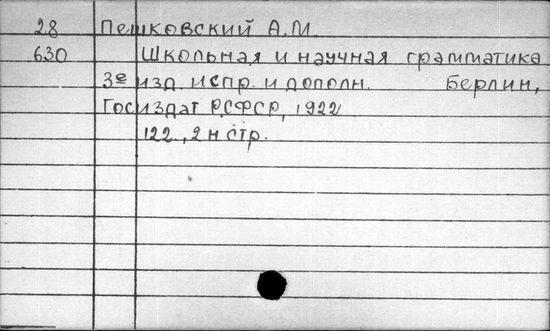 28 Пешковский А.М.
630 Школьная и научная грамматика
3е изд. испр. и дополн. Берлин,
Госиздат РСФСР, 1922
122, 2 н стр.